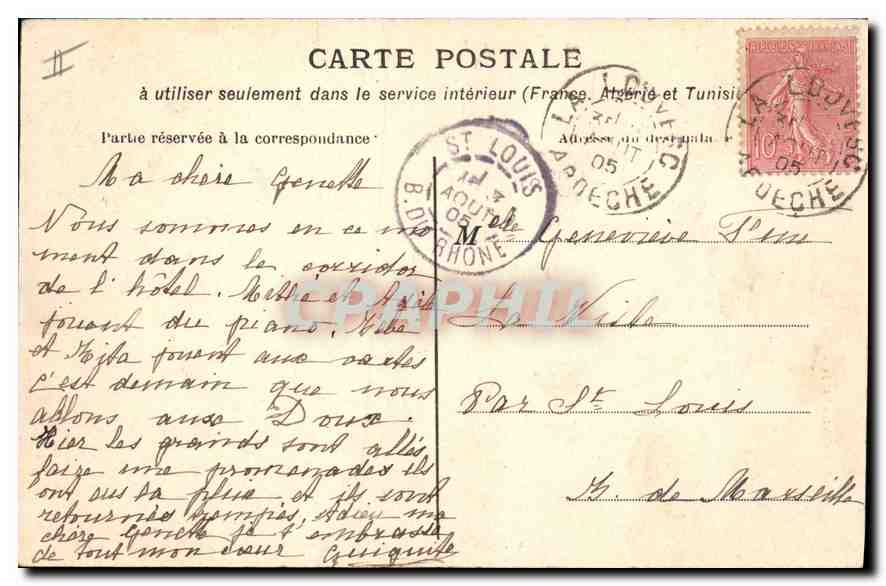 CARTE POSTALE
à utiliser seulement dans le service intérieur (France, Algérie et Tunisie
Partie réservée à la correspondance
Adresse du destinata
LA LOUVESC
AOUT
05
ARDECHE
LA LOUVESC
05
ARDECHE
10
ST LOUIS
3
AOUT
05
B. DU RHONE
Ma chère Genette
Nous sommes en ce mo
ment dans le corridor
de l'hôtel. et
jouent du piano,
et jouent aux cartes
c'est demain que nous
allons aux Doux.
Hier les grands sont allés
faire une promenades ils
ont eus la pluie et ils sont
retournés trempés, Adieu ma
chère Genette je t'embrasse
de tout mon cœur Guiguite
M elle Geneviève
La Viste
Par St Louis
B. de Marseille
CPAPHIL